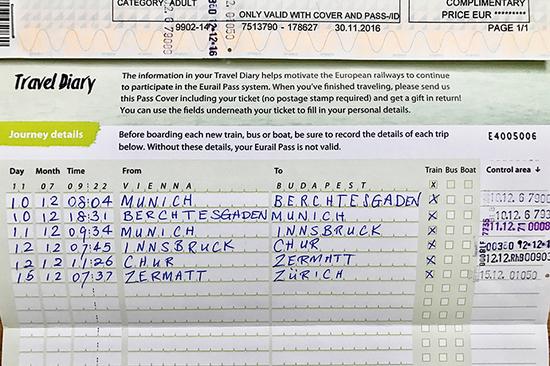 CATEGORY ADULT
COMPLIMENTARY
ONLY VALID WITH COVER AND PASS-/ID
PRICE EUR ********
7513790 - 178627 30.11.2016
PAGE 1/1
Travel Diary
The information in your Travel Diary helps motivate the European railways to continue
to participate in the Eurail Pass system. When you've finished traveling, please send us
this Pass Cover including your ticket (no postage stamp required) and get a gift in return!
You can use the fields underneath your ticket to fill in your personal details.
Journey details
Before boarding each new train, bus or boat, be sure to record the details of each trip
below. Without these details, your Eurail Pass is not valid.
E4005006
Day Month Time From To Train Bus Boat Control area ↓
11 07 09:22 VIENNA BUDAPEST X
10 12 08:04 MUNICH BERCHTESGADEN X 10.12.
10 12 18:31 BERCHTESGADEN MUNICH X 10.12.
11 12 09:34 MUNICH INNSBRUCK X
12 12 07:45 INNSBRUCK CHUR X
12 12 11:26 CHUR ZERMATT X
15 12 07:37 ZERMATT ZÜRICH X 15.12. 01050